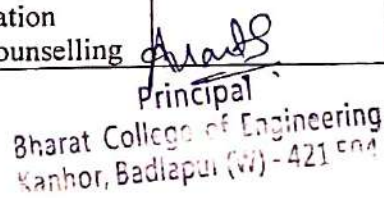 ation
ounselling
Principal
Bharat College of Engineering
Kanhor, Badlapur (W) - 421 504